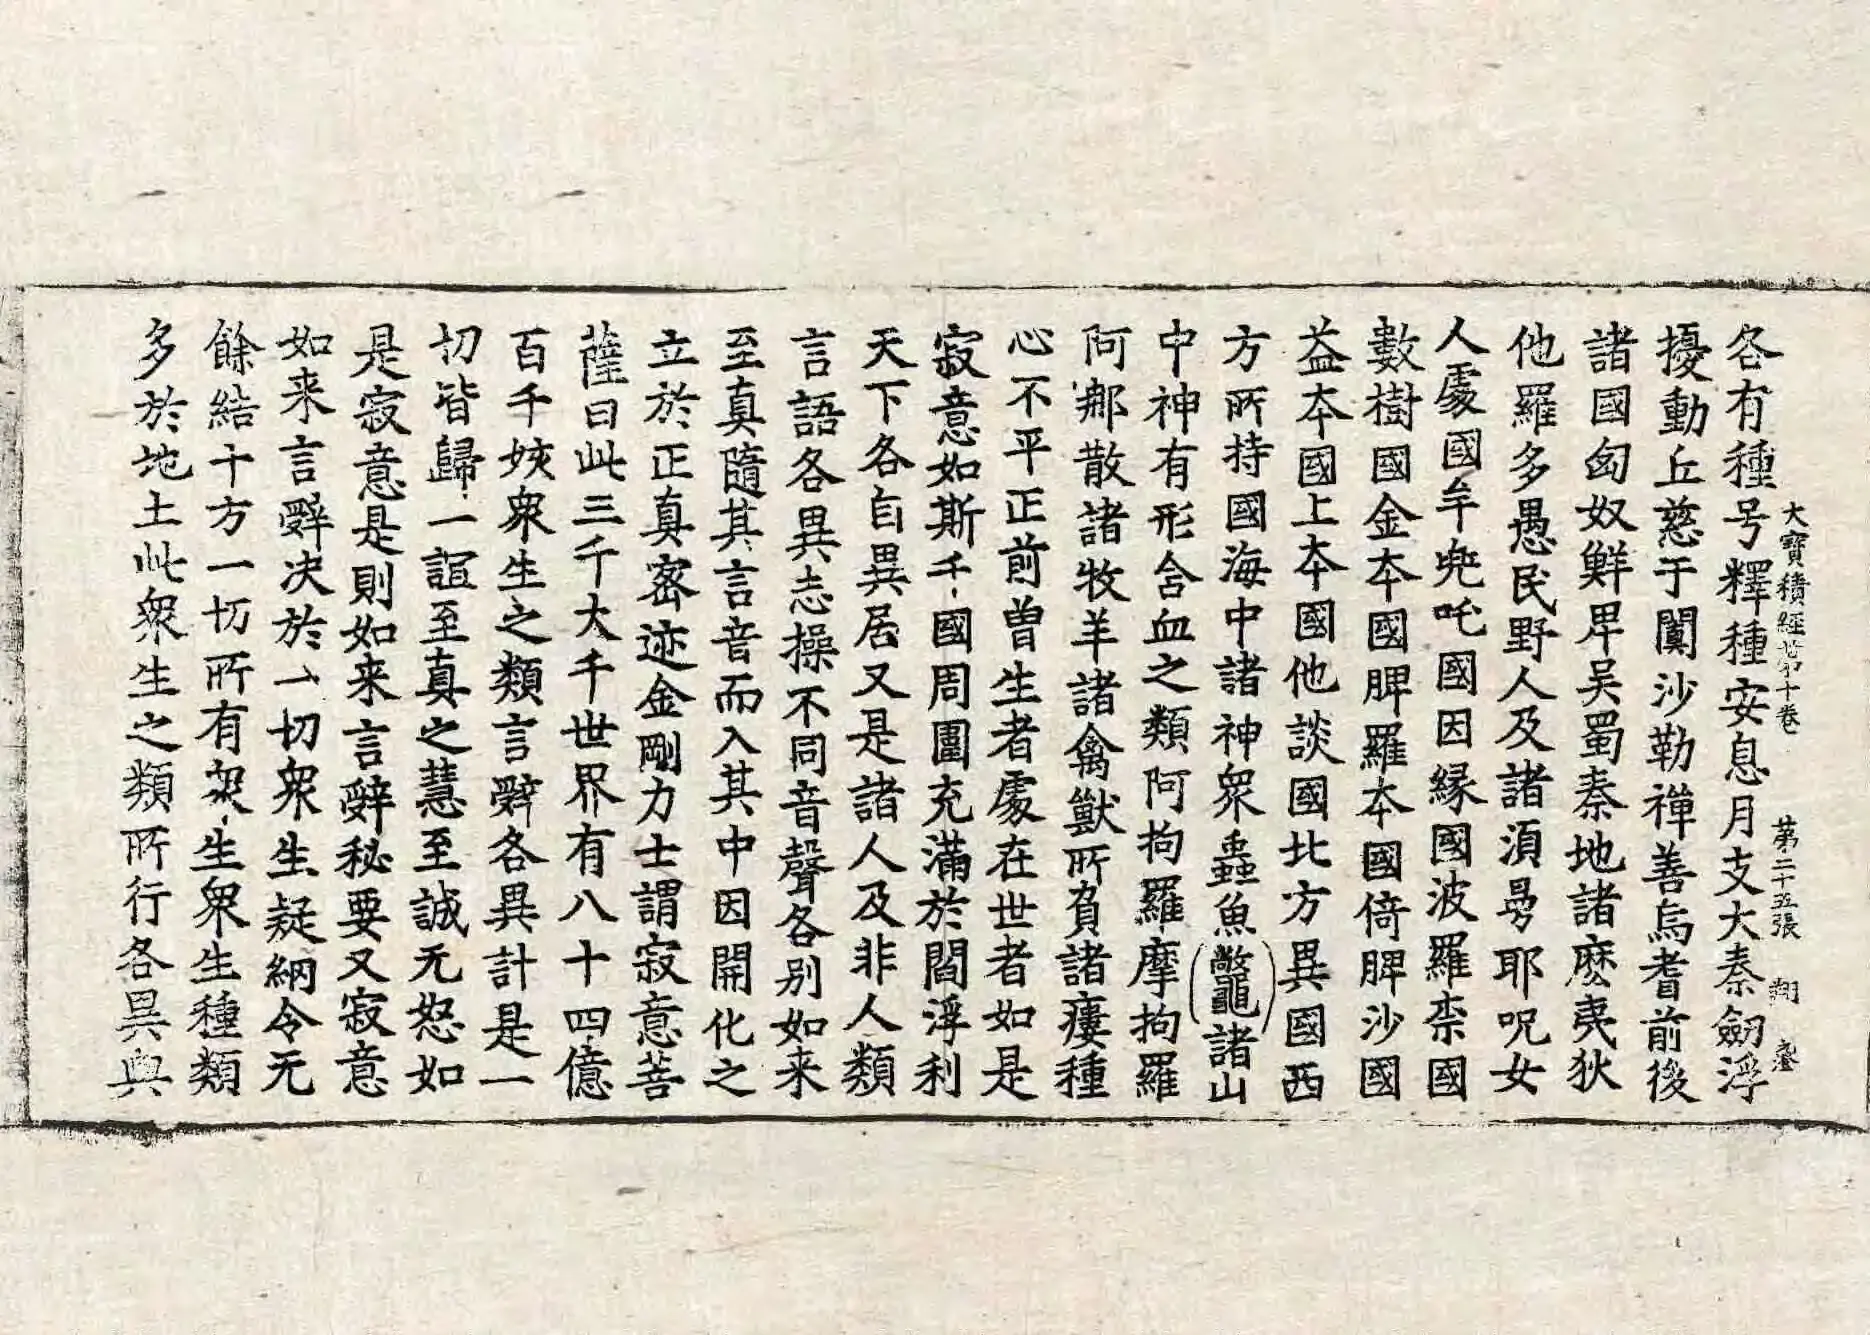 大寶積經第十卷 第二十五張 翔 鏊
各有種号釋種安息月支大秦劒浮
擾動丘慈于闐沙勒禪善烏耆前後
諸國匈奴鮮卑吴蜀秦地諸麼夷狄
他羅多愚民野人及諸湏曼耶呪女
人處國牟兠吒國因縁國波羅柰國
數樹國金本國脾羅夲國倚脾沙國
益夲國上夲國他談國北方異國西
方所持國海中諸神衆蟲魚鼈黿諸山
中神有形含血之類阿拘羅摩拘羅
阿那散諸牧羊諸禽獸所負諸瘻種
心不平正前曽生者處在世者如是
寂意如斯千國周圍充滿於閻浮利
天下各各自異居又是諸人及非人類
言語各異志操不同音聲各别如来
至真隨其言音而入其中因開化之
立於正真密迹金剛力士謂寂意菩
薩曰此三千大千世界有八十四億
百千姟衆生之類言辭各異計是一
切皆歸一誼至真之慧至誠无怒如
是寂意是則如来言辭秘要又寂意
如来言辭决於一切衆生疑網令无
餘結十方一切所有衆生衆生種類
多於地土此衆生之類所行各異與